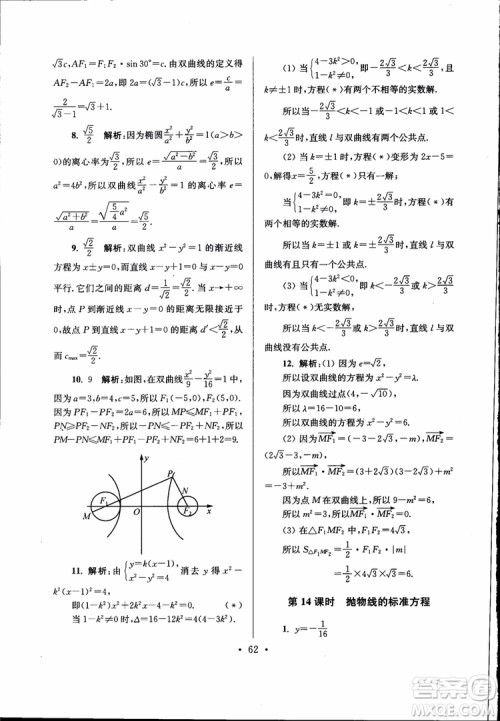 √3c, AF₁=F₁F₂·sin 30°=c. 由双曲线的定义得
AF₂-AF₁=2a, 即2a=(√3-1)c, 所以e=c/a=
2/(√3-1)=√3+1.
8. √5/2 解析: 因为椭圆x²/a²+y²/b²=1(a>b>
0)的离心率为√3/2, 所以e=√(a²-b²)/a=√3/2,
所以双曲线x²/a²-y²/b²=1的离心率e=
√(a²+b²)/a=√(5/4 a²)/a=√5/2.
9. √2/2 解析: 双曲线x²-y²=1的渐近线
方程为x±y=0. 直线x-y+1=0与渐近线x-y=0平
行, 它们之间的距离d=1/√2=√2/2. 因为双曲线右支上
的动点, 点P到渐近线x-y=0的距离无限接近于
0, 故点P到直线x-y+1=0的距离d'<√2/2, 从
而c max=√2/2.
10. 9 解析: 如图, 在双曲线x²/9-y²/16=1中,
因为a=3, b=4, c=5, 所以F₁(-5,0), F₂(5,0). 因
为PF₁-PF₂=2a=6. 所以MP≤PF₁+MF₁,
PN≥PF₂-NF₂, 所以-PN≤-PF₂+NF₂, 所以
PM-PN≤PF₁+MF₁-PF₂+NF₂=6+1+2=9.
y
P
N
M F₁ O F₂ x
11. 解析: 由{y=k(x-1), x²-y²=4 消去y, 得
(1-k²)x²+2k²x-k²-4=0. (*)
当1-k²≠0时, Δ=(2k²)²-4(1-k²)(-k²-4)=
4(4-3k²).
(1) 当{4-3k²>0, 1-k²≠0, 即-2√3/3<k<2√3/3且
k≠±1时, 方程(*)有两个不相等的实数根.
所以当-2√3/3<k<-1或-1<k<1或1<
k<2√3/3时, 直线l与双曲线有两个公共点.
(2) 当1-k²=0即k=±1时, 方程(*)变为2x-5=0.
此时方程(*)只有一解;
当{4-3k²=0, 1-k²≠0, 即k=±2√3/3时, 方程(*)有两
个相等的实数根.
所以当k=±1或k=±2√3/3时, 直线l与双曲
线有且只有一个公共点.
(3) 当{4-3k²<0, 1-k²≠0, 即k<-2√3/3或k>2√3/3时,
方程(*)无实数解.
所以当k<-2√3/3或k>2√3/3时, 直线l与双曲
线无公共点.
12. 解析: (1) 因为e=√2,
所以设双曲线的方程为x²-y²=λ.
所以λ=10-6=4.
所以双曲线的方程为x²-y²=6.
(2) MF₁=(-2√3-3,-m), MF₂=
(2√3-3,-m).
所以MF₁·MF₂=-3+m².
因为点M在双曲线上, 所以9-m²=6, 所以
m²=3, 所以MF₁·MF₂=0.
(3) 在△F₁MF₂中, F₁F₂=4√3, 且|m|=√3.
所以S△F₁MF₂=1/2·F₁F₂·|m|
=1/2×4√3×√3=6.
第14课时 抛物线的标准方程
1. y=-1/16
· 62 ·
答案圈
MXQE.COM